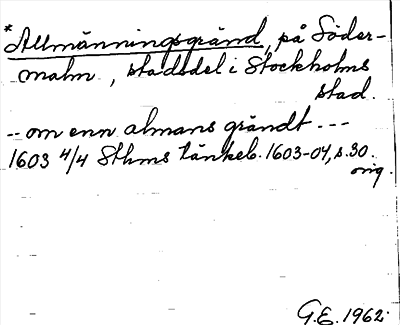 *Allmänningsgränd, på Söder-
malm, stadsdel i Stockholms
stad.
-- om enn almans gråndt ---
1603 4/4 Sthms tänkeb. 1603-04, s. 30.
orig.
G.E. 1962.